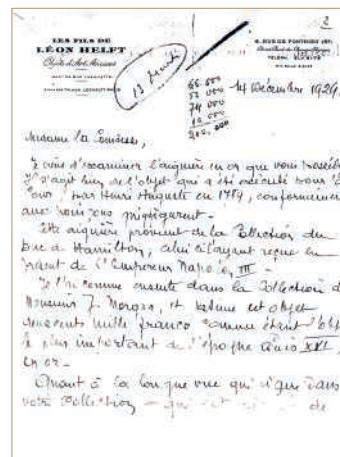 2
LES FILS DE
LÉON HELFT
Objets d'Art Anciens
4, RUE DE PONTHIEU (8E)
TÉLÉPH. ÉLYSÉES
13
66.000
74.000
200.000
14 Décembre 1929
Madame la Comtesse,
Je viens d'examiner l'aiguière en or que vous
Il s'agit bien de l'objet qui a été exécuté pour
par Henri Auguste en 1784, conformément
aux
Cette aiguière provient de la Collection du
Duc de Hamilton, celui-ci l'ayant reçue en
de l'Empereur Napoléon III
Je l'ai connue ensuite dans la Collection d
Monsieur J. Morgan, et estime cet objet
deux cents mille francs comme étant l'obj
le plus important de l'époque Louis XVI,
en or.
Quant à la longue vue qui dans
votre Collection de